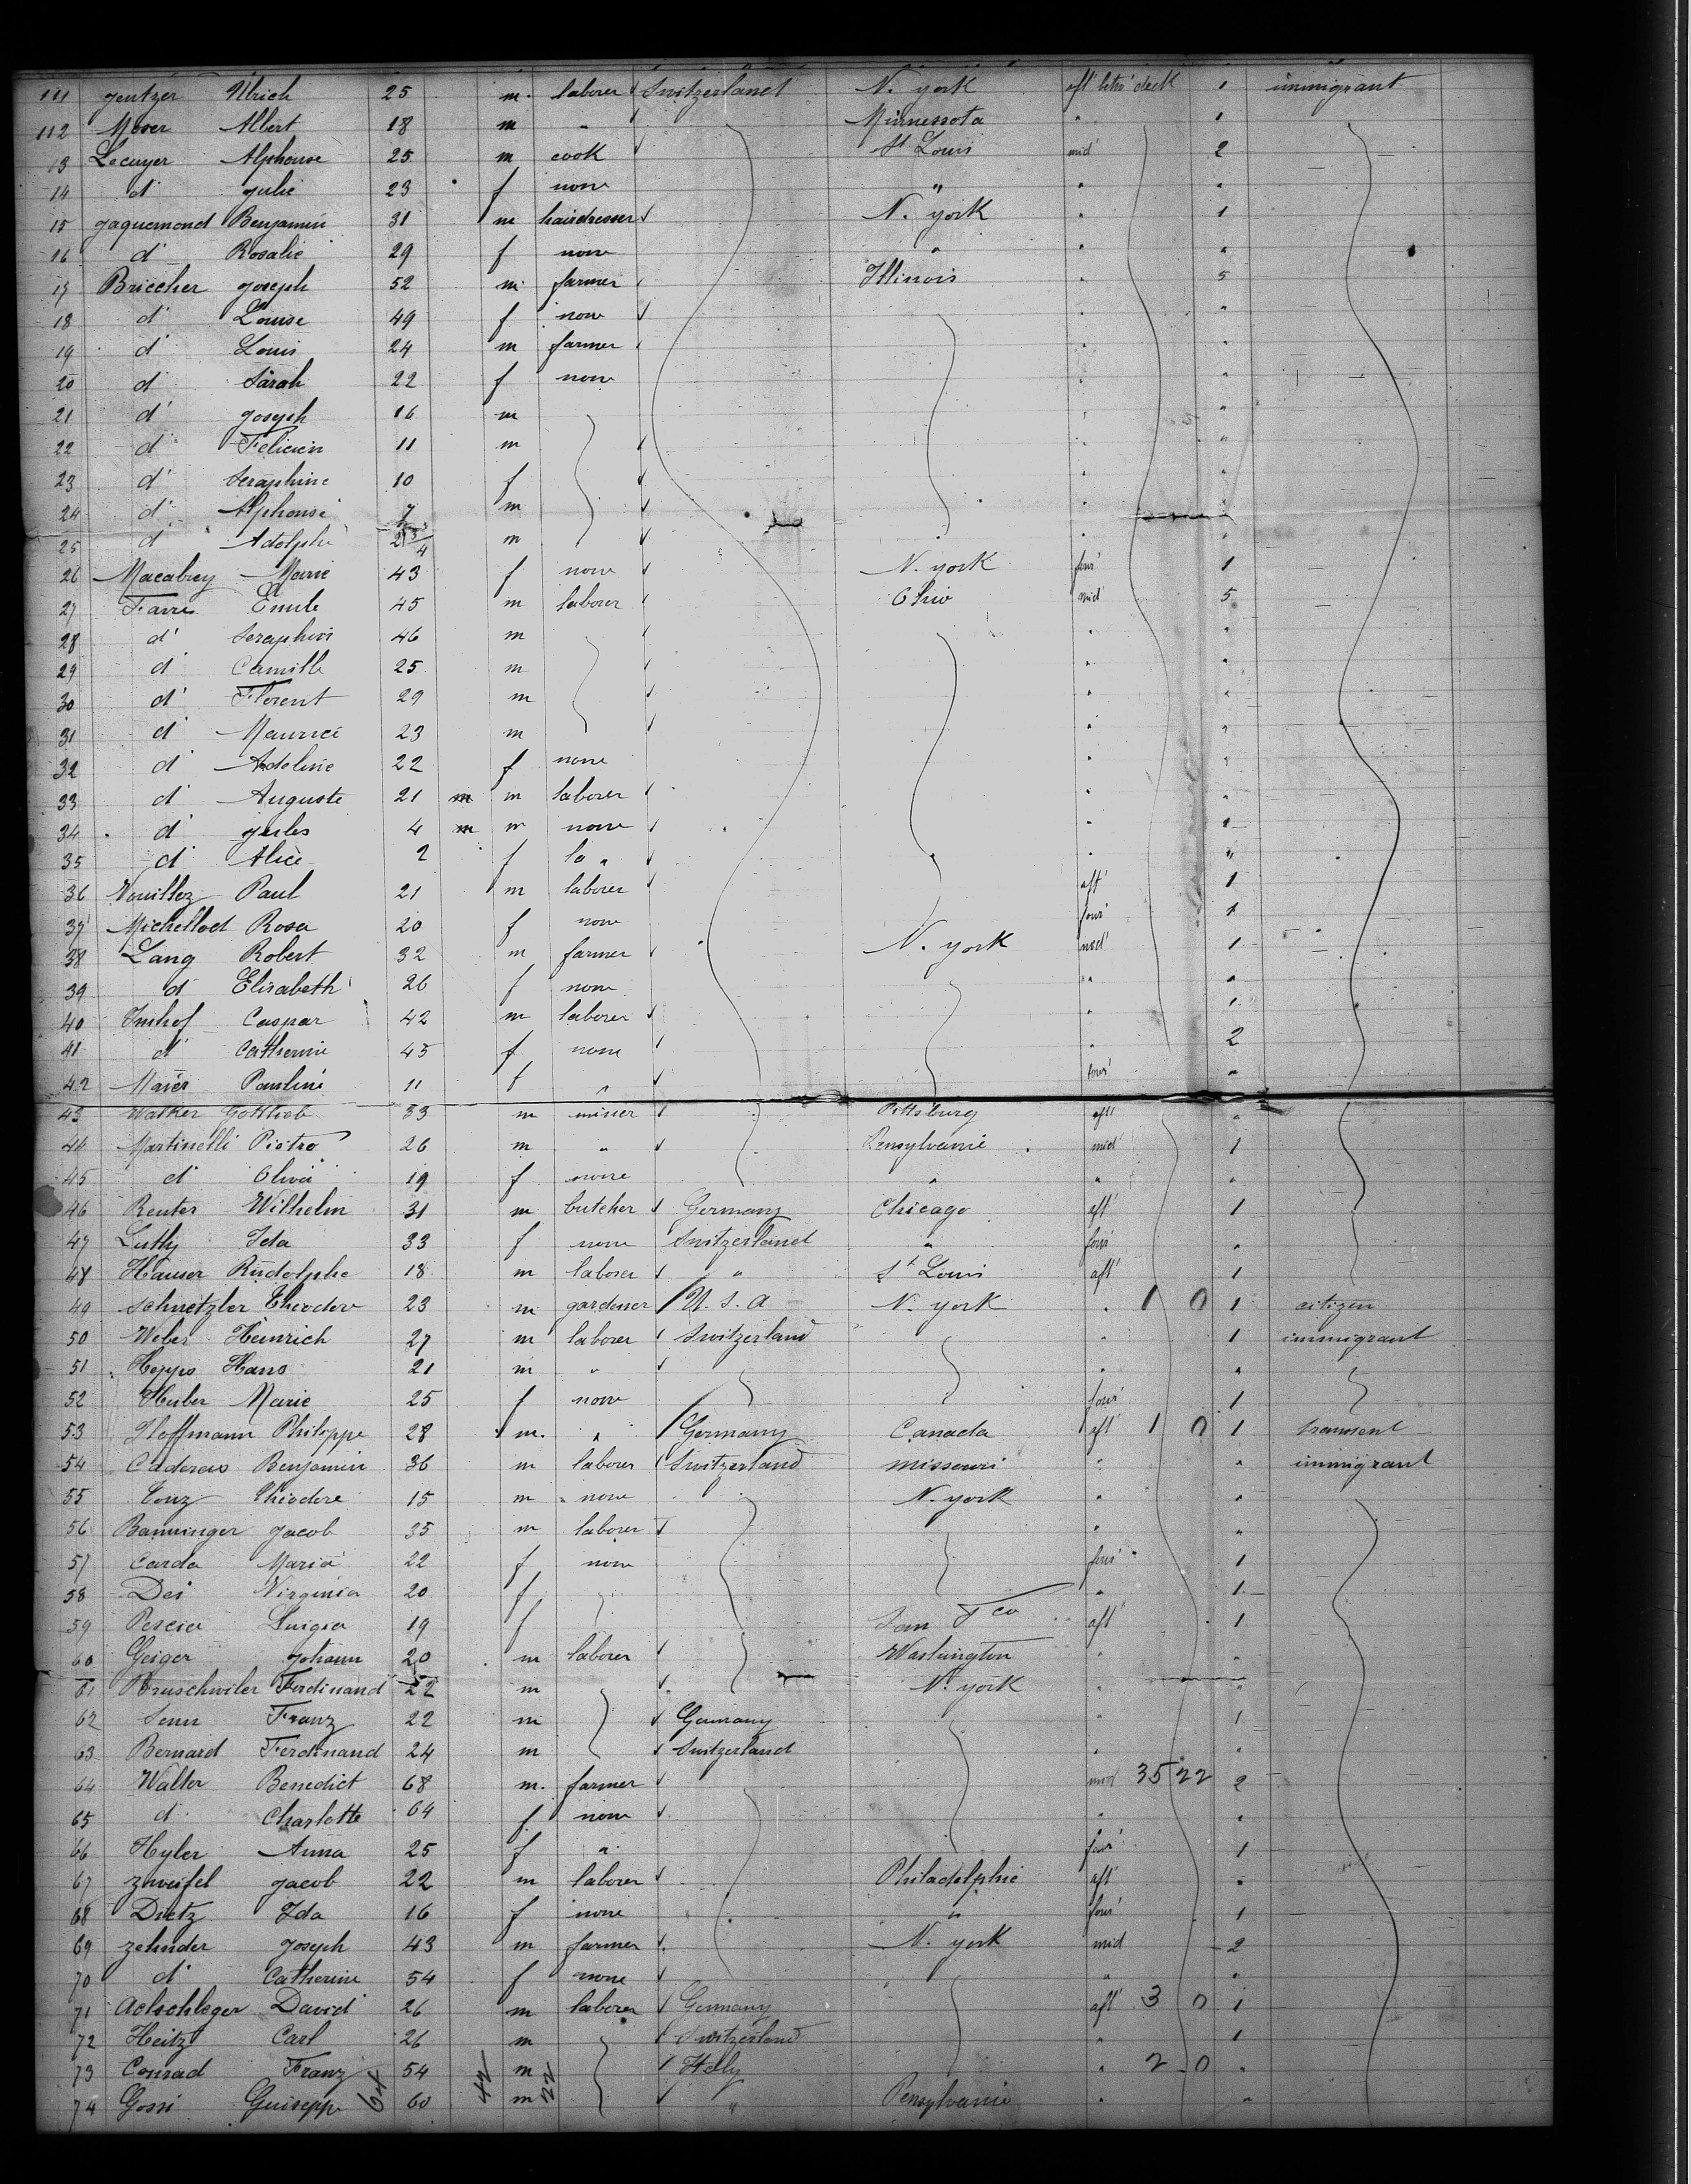 111 Jentzer Ulrich 25 m. laborer Switzerland N. york aft betw deck 1 immigrant
112 Moser Albert 18 m " Minnessota " 1
13 Lecuyer Alphonse 25 m cook St Louis mid' 2
14 d' Julie 23 f none " " "
15 Jaquemond Benjamin 31 m hairdresser N. york " 1
16 d' Rosalie 29 f none " " "
17 Briccher Joseph 52 m farmer Illinois " 5
18 d' Louise 49 f none " "
19 d' Louis 24 m farmer " "
20 d' Sarah 22 f none " "
21 d' Joseph 16 m " "
22 d' Felicien 11 m " "
23 d' Seraphine 10 f " "
24 d' Alphonse 7 m " "
25 d' Adolphe m " "
26 Macabrey Marie 43 f none N. york four' 1
27 Favre Emile 45 m laborer Ohio mid' 5
28 d' Seraphin 46 m " "
29 d' Camille 25 m " "
30 d' Florent 29 m " "
31 d' Maurice 23 m " "
32 d' Adeline 22 f none " "
33 d' Auguste 21 m m laborer " "
34 d' Jules 4 m m none " "
35 d' Alice 2 f la " " "
36 Vouilloz Paul 21 m laborer aft' 1
37 Michellod Rosa 20 f none four' 1
38 Lang Robert 32 m farmer N. york mid' 1
39 d' Elisabeth 26 f none " "
40 Imhof Caspar 42 m laborer " 1
41 d' Catherine 45 f none " 2
42 Maier Pauline 11 f " four' "
43 Walker Gottlieb 33 m miner Pittsburg aft' "
44 Martinelli Pietro 26 m " Pensylvanie mid' 1
45 d' Olivia 19 f none " " "
46 Reuter Wilhelm 31 m butcher Germany Chicago aft' 1
47 Luthy Ida 33 f none Switzerland " four' "
48 Hauser Rudolphe 18 m laborer " St Louis aft' 1
49 Schnetzler Theodore 23 m gardener U. S. A N. york " 1 0 1 citizen
50 Weber Heinrich 27 m laborer Switzerland " 1 immigrant
51 Hepps Hans 21 m " " "
52 Huber Marie 25 f none four' 1
53 Hoffmann Philippe 28 m. " Germany Canada aft' 1 0 1 transent
54 Caderas Benjamin 36 m laborer Switzerland missouri " " immigrant
55 Tonz Theodore 15 m none N. york " "
56 Banninger Jacob 35 m laborer " "
57 Carda Maria 22 f none four' 1
58 Dei Virginia 20 f " 1
59 Luigia 19 f San Fco aft' 1
60 Geiger Johann 20 m laborer Washington " "
61 Bruschwiler Ferdinand 22 m N. york " "
62 Senn Franz 22 m Germany " 1
63 Bernard Ferdinand 24 m Switzerland " "
64 Walter Benedict 68 m. farmer mid 35 22 2
65 d' Charlotte 64 f none " "
66 Hyler Anna 25 f " four' 1
67 Zweifel Jacob 22 m laborer Philadelphie aft' "
68 Dietz Ida 16 f none " four' 1
69 Zehnder Joseph 43 m farmer N. york mid 2
70 d' Catherine 54 f none " "
71 Aelschleger David 26 m laborer Germany aft' 3 0 1
72 Heitz Carl 26 m Switzerland " 1
73 Conrad Franz 54 m Itally " 2 0 "
74 Gossi Guiseppe 60 m " Pensylvanie " "
64 42 22